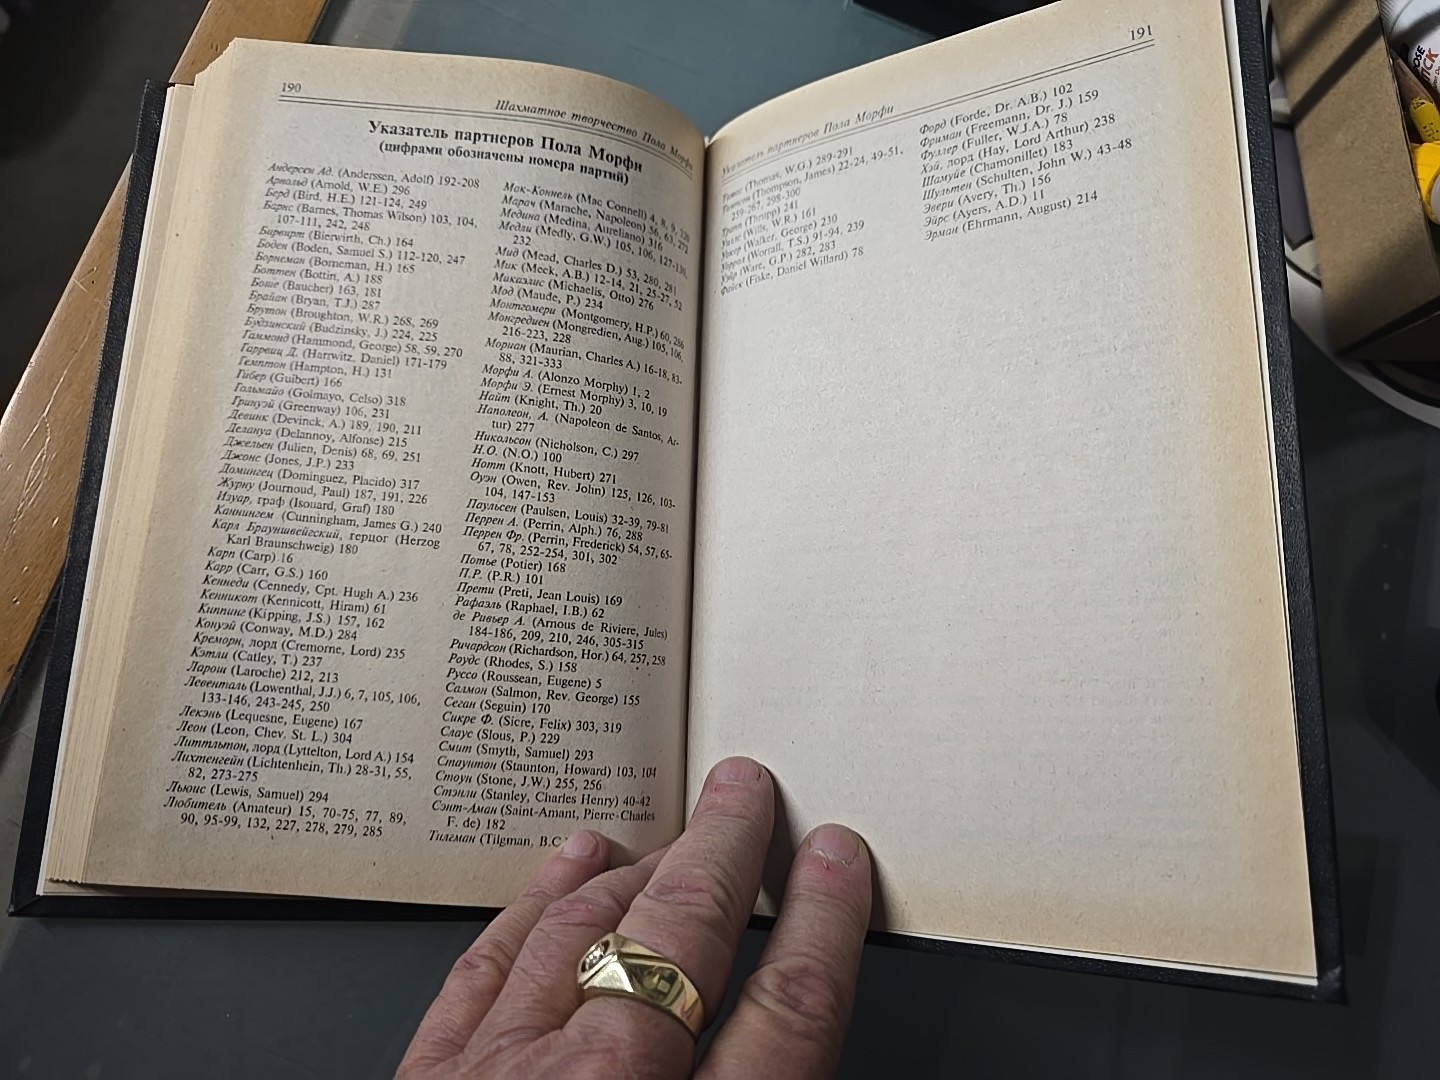 190
Шахматное творчество Пола Морфи
Указатель партнеров Пола Морфи
(цифрами обозначены номера партий)
Андерсен Ад. (Anderssen, Adolf) 192-208
Арнольд (Arnold, W.E.) 296
Берд (Bird, H.E.) 121-124, 249
Барнс (Barnes, Thomas Wilson) 103, 104,
107-111, 242, 248
Бирвирт (Bierwirth, Ch.) 164
Боден (Boden, Samuel S.) 112-120, 247
Борнеман (Borneman, H.) 165
Боттен (Bottin, A.) 188
Боше (Baucher) 163, 181
Брайан (Bryan, T.J.) 287
Брутон (Broughton, W.R.) 268, 269
Будзинский (Budzinsky, J.) 224, 225
Гаммонд (Hammond, George) 58, 59, 270
Гаррвиц Д. (Harrwitz, Daniel) 171-179
Гемптон (Hampton, H.) 131
Гибер (Guibert) 166
Гольмайо (Golmayo, Celso) 318
Гринуэй (Greenway) 106, 231
Девинк (Devinck, A.) 189, 190, 211
Делануа (Delannoy, Alfonse) 215
Джельен (Julien, Denis) 68, 69, 251
Джонс (Jones, J.P.) 233
Домингец (Dominguez, Placido) 317
Журну (Journoud, Paul) 187, 191, 226
Изуар, граф (Isouard, Graf) 180
Каннингем (Cunningham, James G.) 240
Карл Брауншвейгский, герцог (Herzog
Karl Braunschweig) 180
Карп (Carp) 16
Карр (Carr, G.S.) 160
Кеннеди (Cennedy, Cpt. Hugh A.) 236
Кенникот (Kennicott, Hiram) 61
Киппинг (Kipping, J.S.) 157, 162
Конуэй (Conway, M.D.) 284
Креморн, лорд (Cremorne, Lord) 235
Кэтли (Catley, T.) 237
Ларош (Laroche) 212, 213
Левенталь (Lowenthal, J.J.) 6, 7, 105, 106,
133-146, 243-245, 250
Лекэнь (Lequesne, Eugene) 167
Леон (Leon, Chev. St. L.) 304
Литтльтон, лорд (Lyttelton, Lord A.) 154
Лихтенгейн (Lichtenhein, Th.) 28-31, 55,
82, 273-275
Льюис (Lewis, Samuel) 294
Любитель (Amateur) 15, 70-75, 77, 89,
90, 95-99, 132, 227, 278, 279, 285
Мак-Коннель (Mac Connell) 4, 8, 9,
Марач (Marache, Napoleon) 56, 63, 272
Медина (Medina, Aureliano) 316
Медли (Medly, G.W.) 105, 106, 127-130,
232
Мид (Mead, Charles D.) 53, 280, 281
Мик (Meek, A.B.) 12-14, 21, 25-27, 52
Микаэлис (Michaelis, Otto) 276
Мод (Maude, P.) 234
Монтгомери (Montgomery, H.P.) 60, 286
Монгредиен (Mongredien, Aug.) 105, 106,
216-223, 228
Мориан (Maurian, Charles A.) 16-18, 83-
88, 321-333
Морфи А. (Alonzo Morphy) 1, 2
Морфи Э. (Ernest Morphy) 3, 10, 19
Найт (Knight, Th.) 20
Наполеон, А. (Napoleon de Santos, Ar-
tur) 277
Никольсон (Nicholson, C.) 297
Н.О. (N.O.) 100
Нотт (Knott, Hubert) 271
Оуэн (Owen, Rev. John) 125, 126, 103-
104, 147-153
Паульсен (Paulsen, Louis) 32-39, 79-81
Перрен А. (Perrin, Alph.) 76, 288
Перрен Фр. (Perrin, Frederick) 54, 57, 65-
67, 78, 252-254, 301, 302
Потье (Potier) 168
П.Р. (P.R.) 101
Прети (Preti, Jean Louis) 169
Рафаэль (Raphael, I.B.) 62
де Ривьер А. (Arnous de Riviere, Jules)
184-186, 209, 210, 246, 305-315
Ричардсон (Richardson, Hor.) 64, 257, 258
Роудс (Rhodes, S.) 158
Руссо (Roussean, Eugene) 5
Салмон (Salmon, Rev. George) 155
Сеган (Seguin) 170
Сикре Ф. (Sicre, Felix) 303, 319
Слаус (Slous, P.) 229
Смит (Smyth, Samuel) 293
Стаунтон (Staunton, Howard) 103, 104
Стоун (Stone, J.W.) 255, 256
Стэнли (Stanley, Charles Henry) 40-42
Сэнт-Аман (Saint-Amant, Pierre-Charles
F. de) 182
Тилгман (Tilgman, B.C.
191
Указатель партнеров Пола Морфи
(Thomas, W.G.) 289-291
(Thompson, James) 22-24, 49-51,
259-267, 298-300
(Thrupp) 241
(Wills, W.R.) 161
(Walker, George) 230
(Worrall, T.S.) 91-94, 239
(Ware, G.P.) 282, 283
Фиск (Fiske, Daniel Willard) 78
Форд (Forde, Dr. A.B.) 102
Фриман (Freemann, Dr. J.) 159
Фуллер (Fuller, W.J.A.) 78
Хэй, лорд (Hay, Lord Arthur) 238
Шамуйе (Chamonillet) 183
Шультен (Schulten, John W.) 43-48
Эвери (Avery, Th.) 156
Эйрс (Ayers, A.D.) 11
Эрман (Ehrmann, August) 214